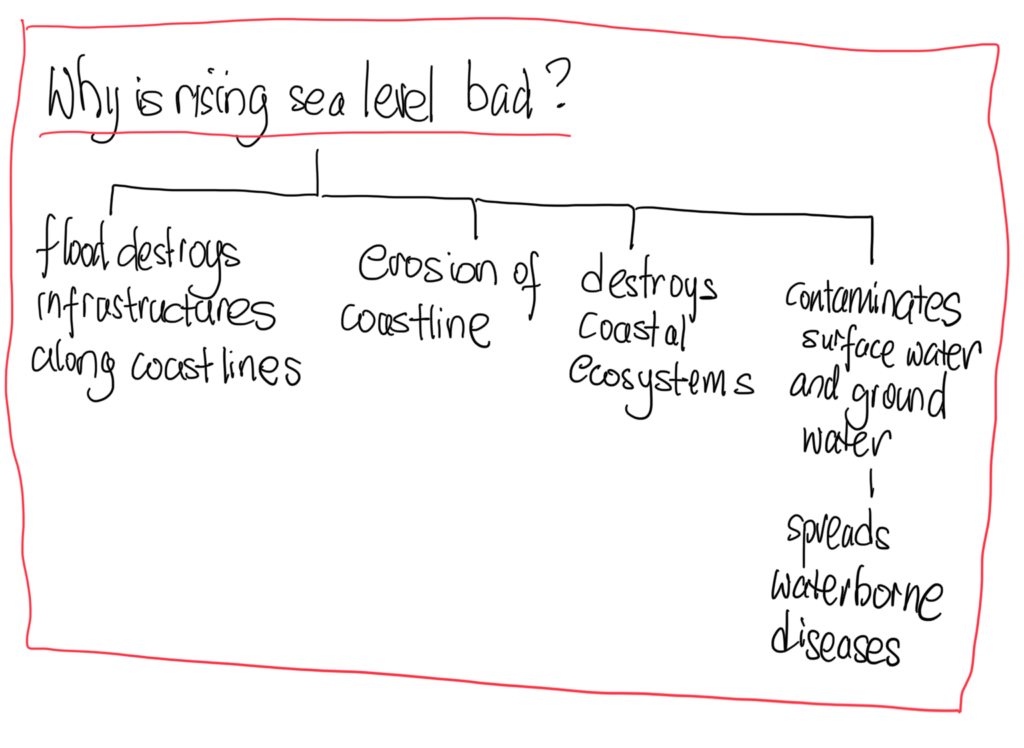 Why is rising sea level bad?
flood destroys
infrastructures
along coastlines
erosion of
coastline
destroys
coastal
ecosystems
contaminates
surface water
and ground
water
spreads
waterborne
diseases